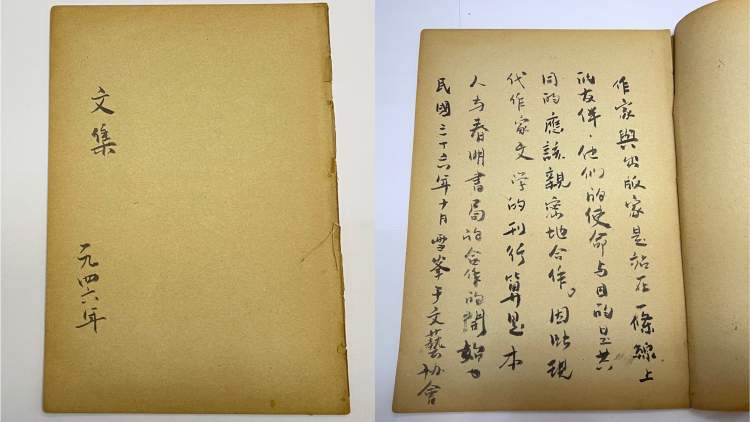 文集
一九四六年
作家與出版家是站在一條線上
的友伴，他们的使命与目的是共
同的應該親密地合作。因此現
代作家文学的刊行算是本
人与春明書局的合作的開始
民國三十六年十月雪峯于文藝协會